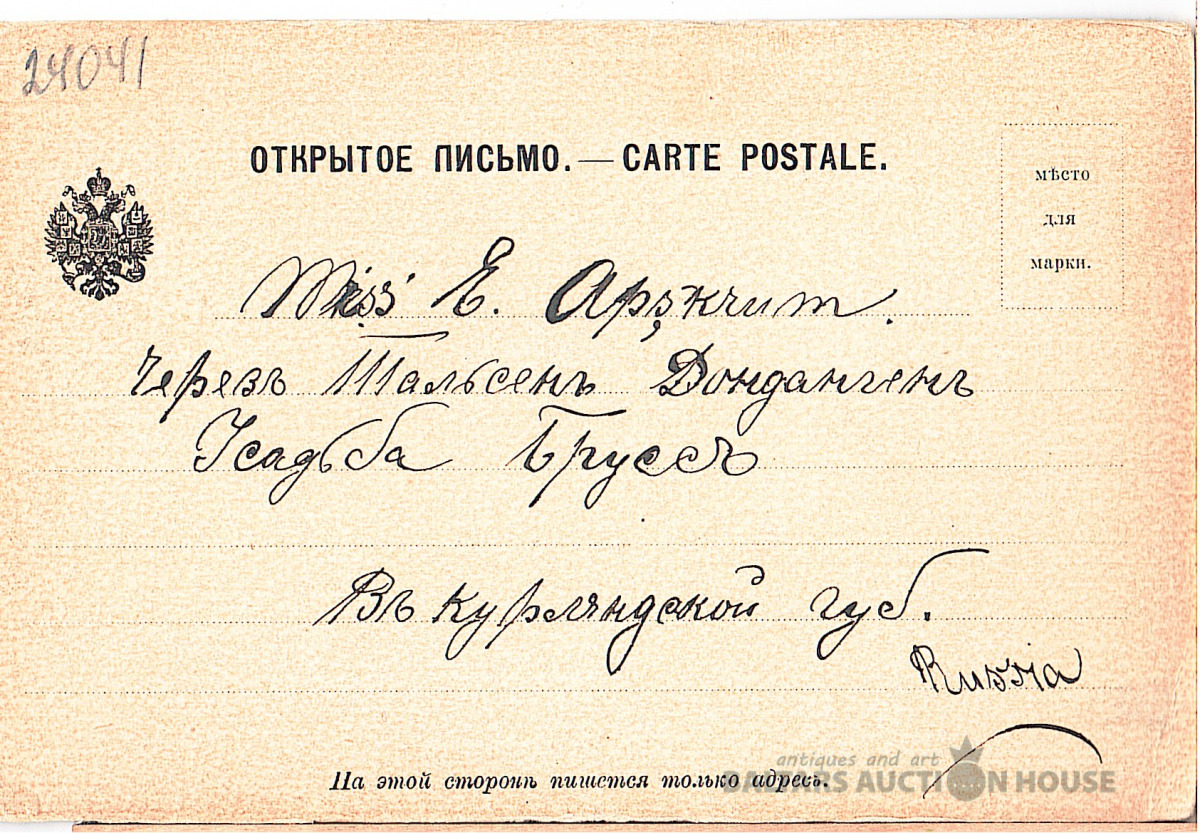 24041
ОТКРЫТОЕ ПИСЬМО. — CARTE POSTALE.
мѣсто
для
марки.
Miss E.
Черезъ Тальсенъ Дондангенъ
Усадьба Бруссъ
Въ Курляндской губ.
Russia
На этой сторонѣ пишется только адресъ.
antiques and art
AUCTION HOUSE